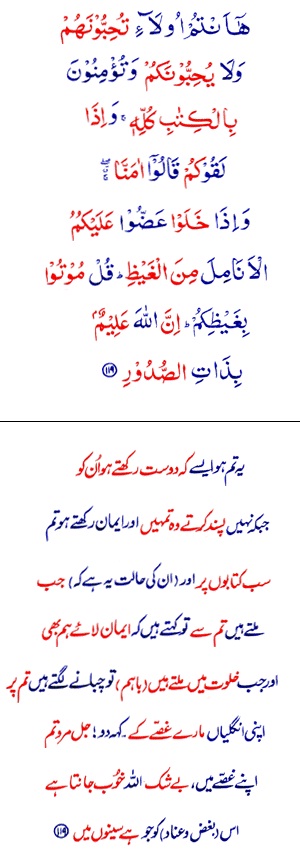 هٰۤاَنْتُمْ اُولَآءِ تُحِبُّوْنَهُمْ
وَلَا يُحِبُّوْنَكُمْ وَتُؤْمِنُوْنَ
بِالْكِتٰبِ كُلِّهٖ ۚ وَاِذَا
لَقُوْكُمْ قَالُوْۤا اٰمَنَّا ۖۗ
وَاِذَا خَلَوْا عَضُّوْا عَلَيْكُمُ
الْاَنَامِلَ مِنَ الْغَيْظِ ؕ قُلْ مُوْتُوْا
بِغَيْظِكُمْ ؕ اِنَّ اللّٰهَ عَلِيْمٌۢ
بِذَاتِ الصُّدُوْرِ ﴿۱۱۹﴾
یہ تم ہو ایسے کہ دوست رکھتے ہو اُن کو
جبکہ نہیں پسند کرتے وہ تمہیں اور ایمان رکھتے ہو تم
سب کتابوں پر اور (ان کی حالت یہ ہے کہ) جب
ملتے ہیں تم سے تو کہتے ہیں کہ ایمان لائے ہم بھی
اور جب خلوت میں ملتے ہیں (باہم) تو چبانے لگتے ہیں تم پر
اپنی انگلیاں مارے غصّے کے۔ کہہ دو! جل مرو تم
اپنے غصّے میں، بے شک اللہ خُوب جانتا ہے
اس (بغض و عناد) کو جو ہے سینوں میں ﴿۱۱۹﴾